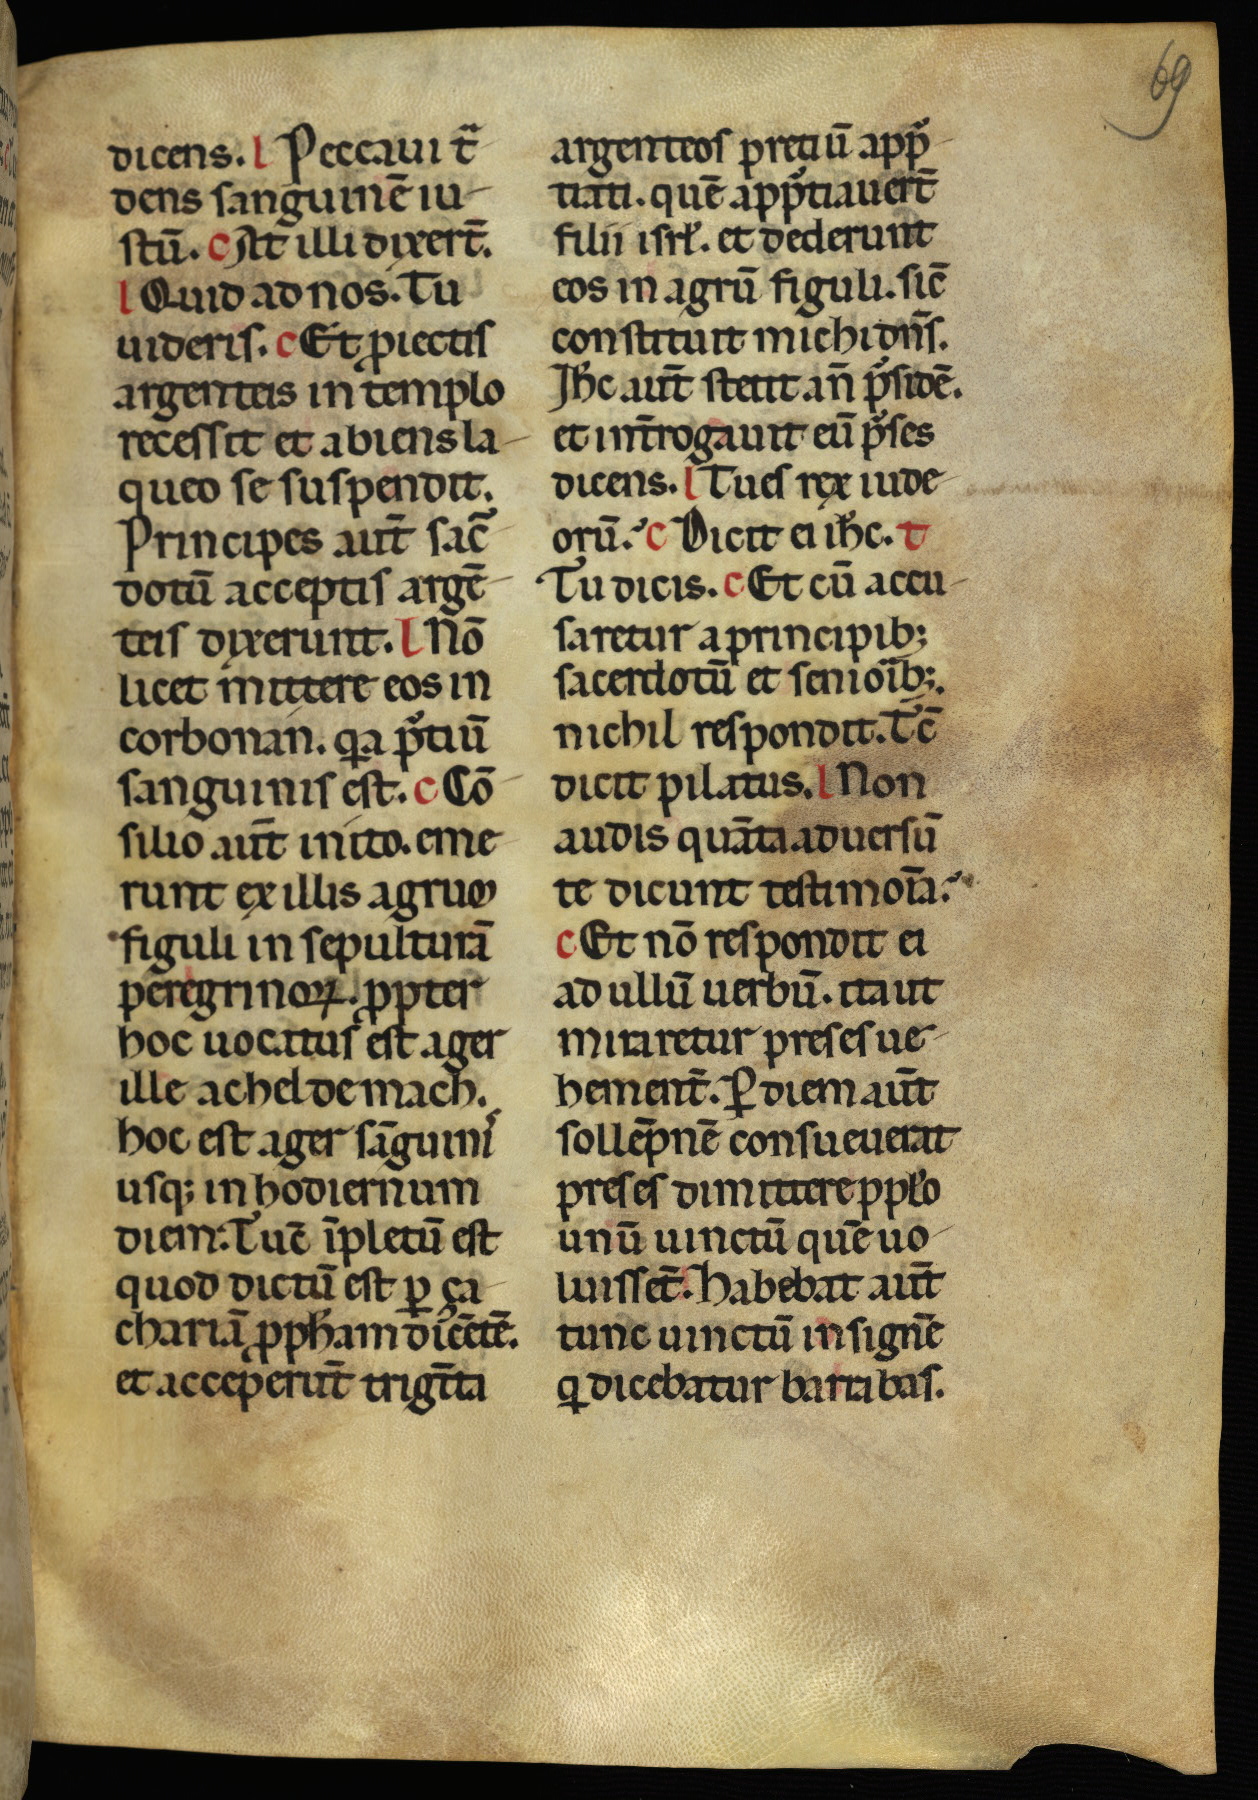 69
dicens. l Peccaui t̄
dens sanguinē iu
stū. c At illi dixert̄.
l Quid ad nos. Tu
uideris. c Et ꝓiectis
argenteis in templo
recessit et abiens la
queo se suspendit.
Principes aut̄ sac̄
dotū acceptis argē
teis dixerunt. l Nō
licet mittere eos in
corbonan. qa p̄tiū
sanguinis est. c Cō
silio aut̄ inito. eme
runt ex illis agrum
figuli in sepulturā
peregrinoꝝ. ꝓpter
hoc uocatus est ager
ille acheldemach.
hoc est ager sāguini
usq; in hodiernum
diem. Tūc īpletū est
quod dictū est ꝑ ça
chariā ꝓph̄am dicētē.
et acceperūt trigīta
argenteos pretiū app̄
tiati. quē app̄tiauert̄
filii isrł. et dederunt
eos in agrū figuli. sic̄
constituit michi dn̄s.
Jh̄c aut̄ stetit an̄ p̄sidē.
et int̄rogauit eū p̄ses
dicens. l Tu es rex iude
orū. c Dicit ei ih̄c. t
Tu dicis. c Et cū accu
saretur a principib;
sacerdotū et senioīb;.
nichil respondit. Tc̄
dicit pilatus. l Non
audis quāta aduersū
te dicunt testimoīa.
c Et nō respondit ei
ad ullū uerbū. ita ut
miraretur preses ue
hement̄. Ꝑ diem aut̄
sollēpnē consueuerat
preses dimittere ppło
unū uinctū quē uo
luisset̄. Habebat aut̄
tunc uinctū insignē
q dicebatur barrabas.